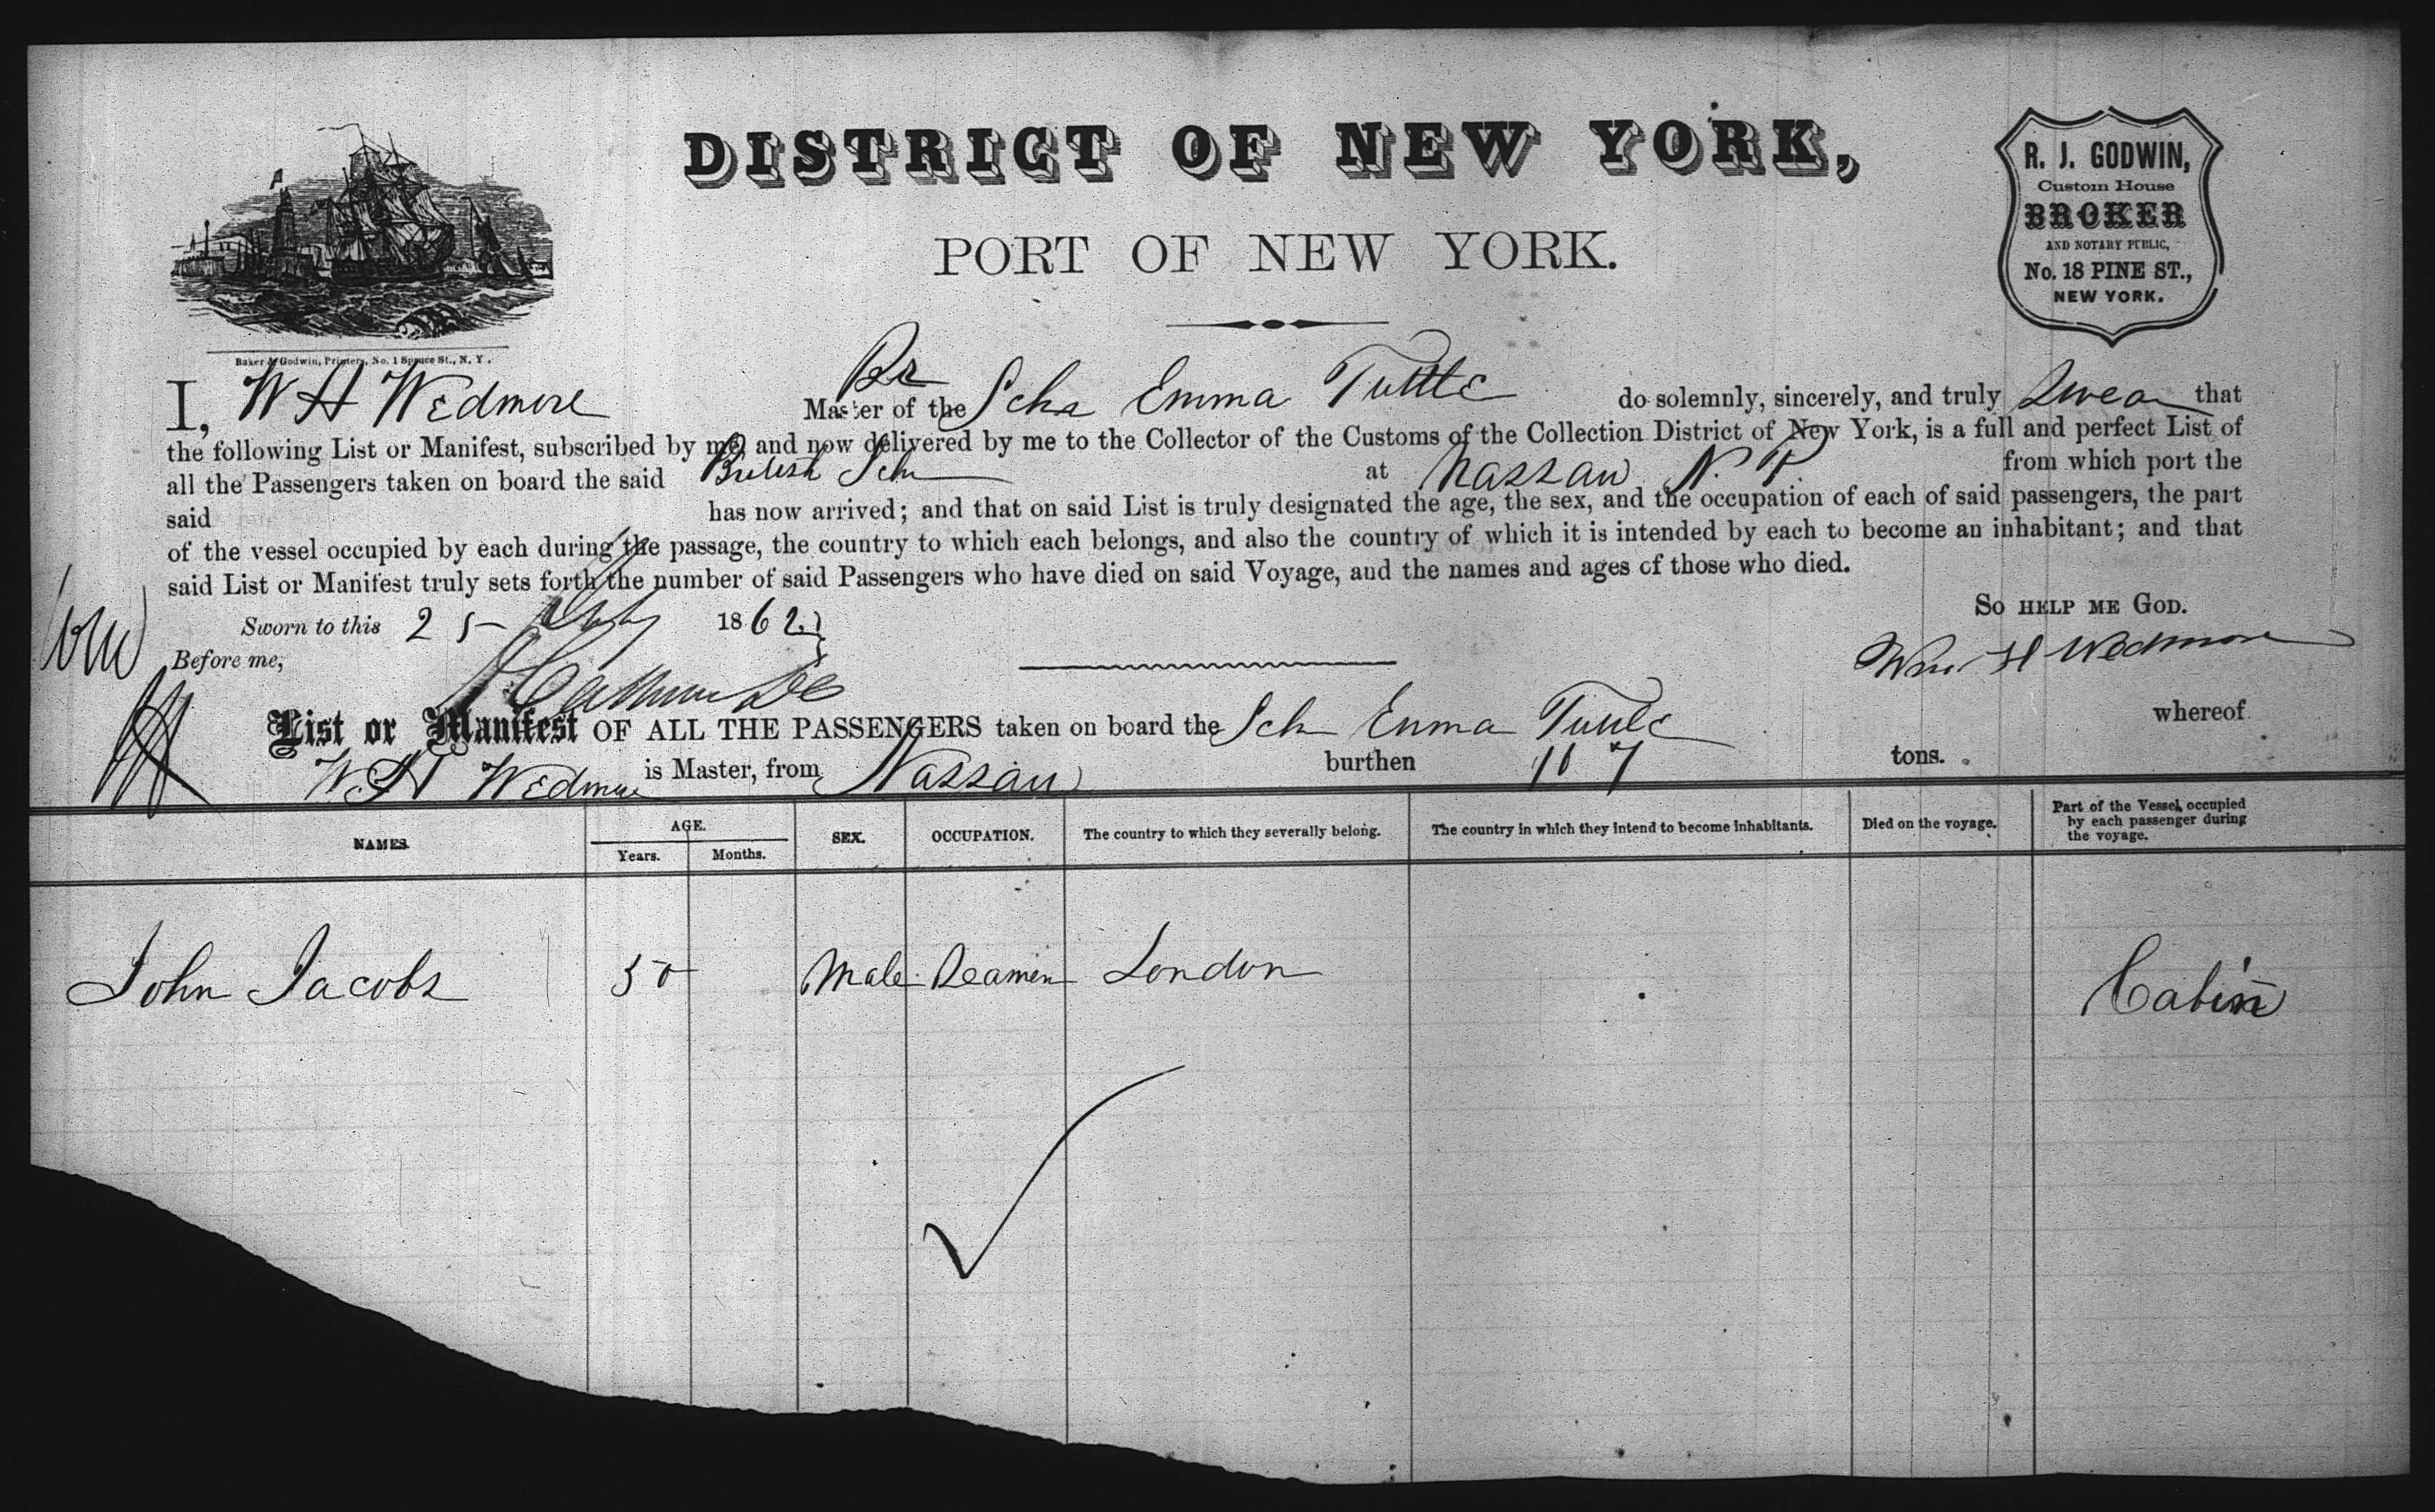 DISTRICT OF NEW YORK,
PORT OF NEW YORK.
R. J. GODWIN,
Custom House
BROKER
AND NOTARY PUBLIC,
No. 18 PINE ST.,
NEW YORK.
Baker & Godwin, Printers, No. 1 Spruce St., N. Y.
Br
I, W H Wedmore Master of the Schr Emma Tuttle do solemnly, sincerely, and truly Swear that
the following List or Manifest, subscribed by me, and now delivered by me to the Collector of the Customs of the Collection District of New York, is a full and perfect List of
all the Passengers taken on board the said British Schr at Nassau N. P. from which port the
said has now arrived; and that on said List is truly designated the age, the sex, and the occupation of each of said passengers, the part
of the vessel occupied by each during the passage, the country to which each belongs, and also the country of which it is intended by each to become an inhabitant; and that
said List or Manifest truly sets forth the number of said Passengers who have died on said Voyage, and the names and ages of those who died.
So HELP ME GOD.
Sworn to this 25 July 1862
Before me,
Wm H Wedmore
List or Manifest OF ALL THE PASSENGERS taken on board the Sch Emma Tuttle whereof
W. H Wedmore is Master, from Nassau burthen 107 tons.
NAMES. AGE. Years. Months. SEX. OCCUPATION. The country to which they severally belong. The country in which they intend to become inhabitants. Died on the voyage. Part of the Vessel occupied by each passenger during the voyage.
John Jacobs 50 Male Seamen London Cabin